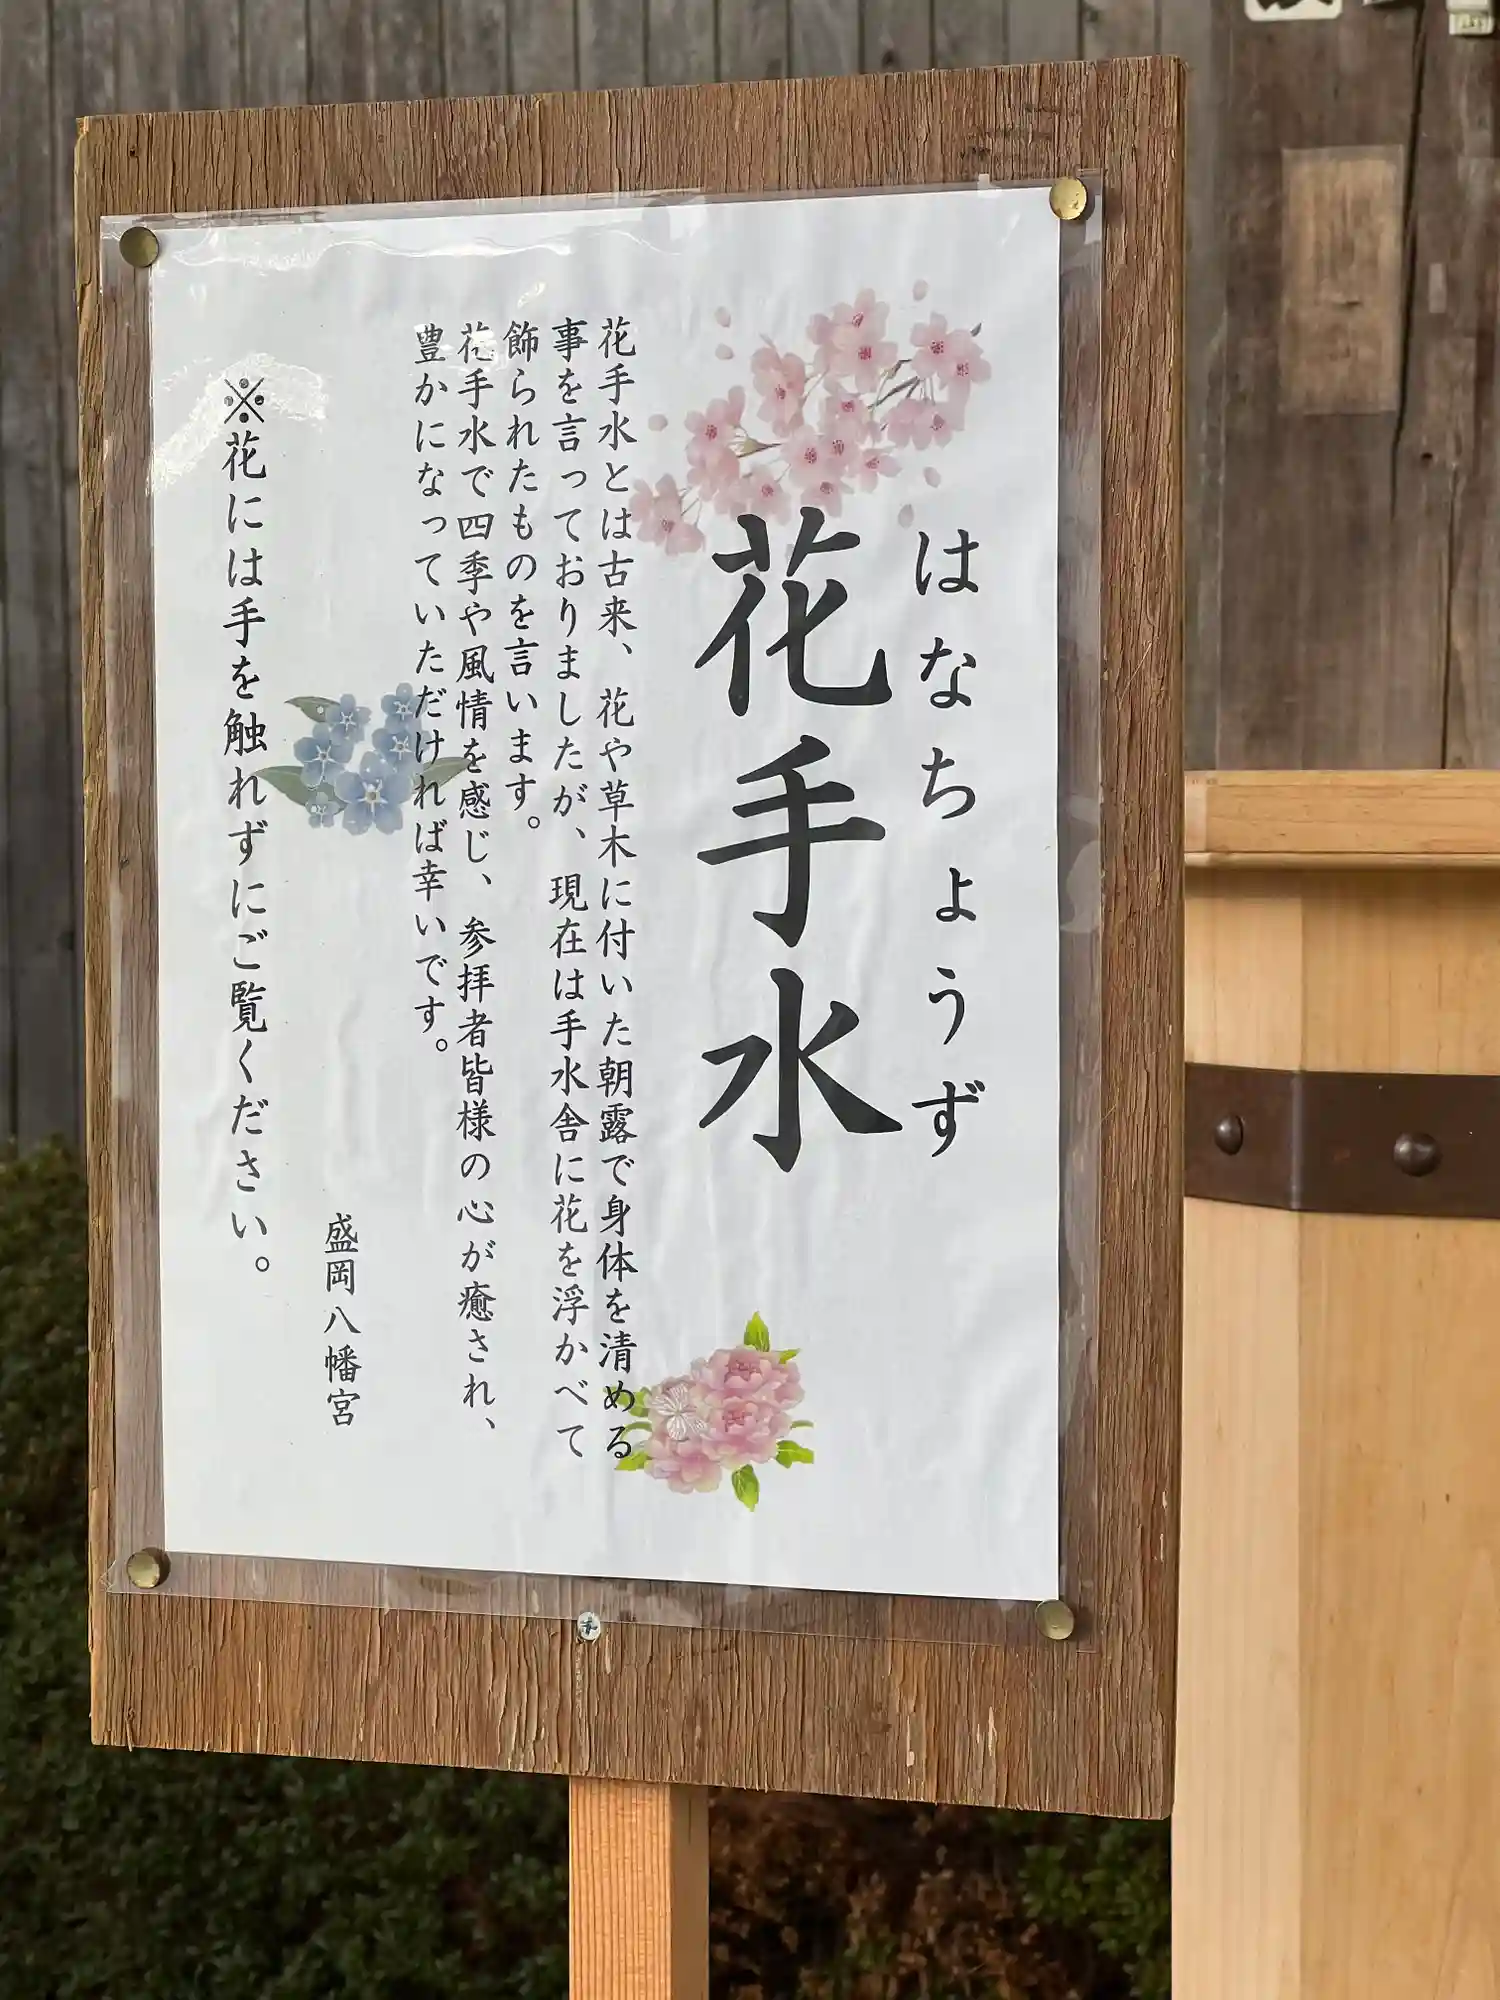 はなちょうず
花手水
花手水とは古来、花や草木に付いた朝露で身体を清める
事を言っておりましたが、現在は手水舎に花を浮かべて
飾られたものを言います。
花手水で四季や風情を感じ、参拝者皆様の心が癒され、
豊かになっていただければ幸いです。
盛岡八幡宮
※花には手を触れずにご覧ください。